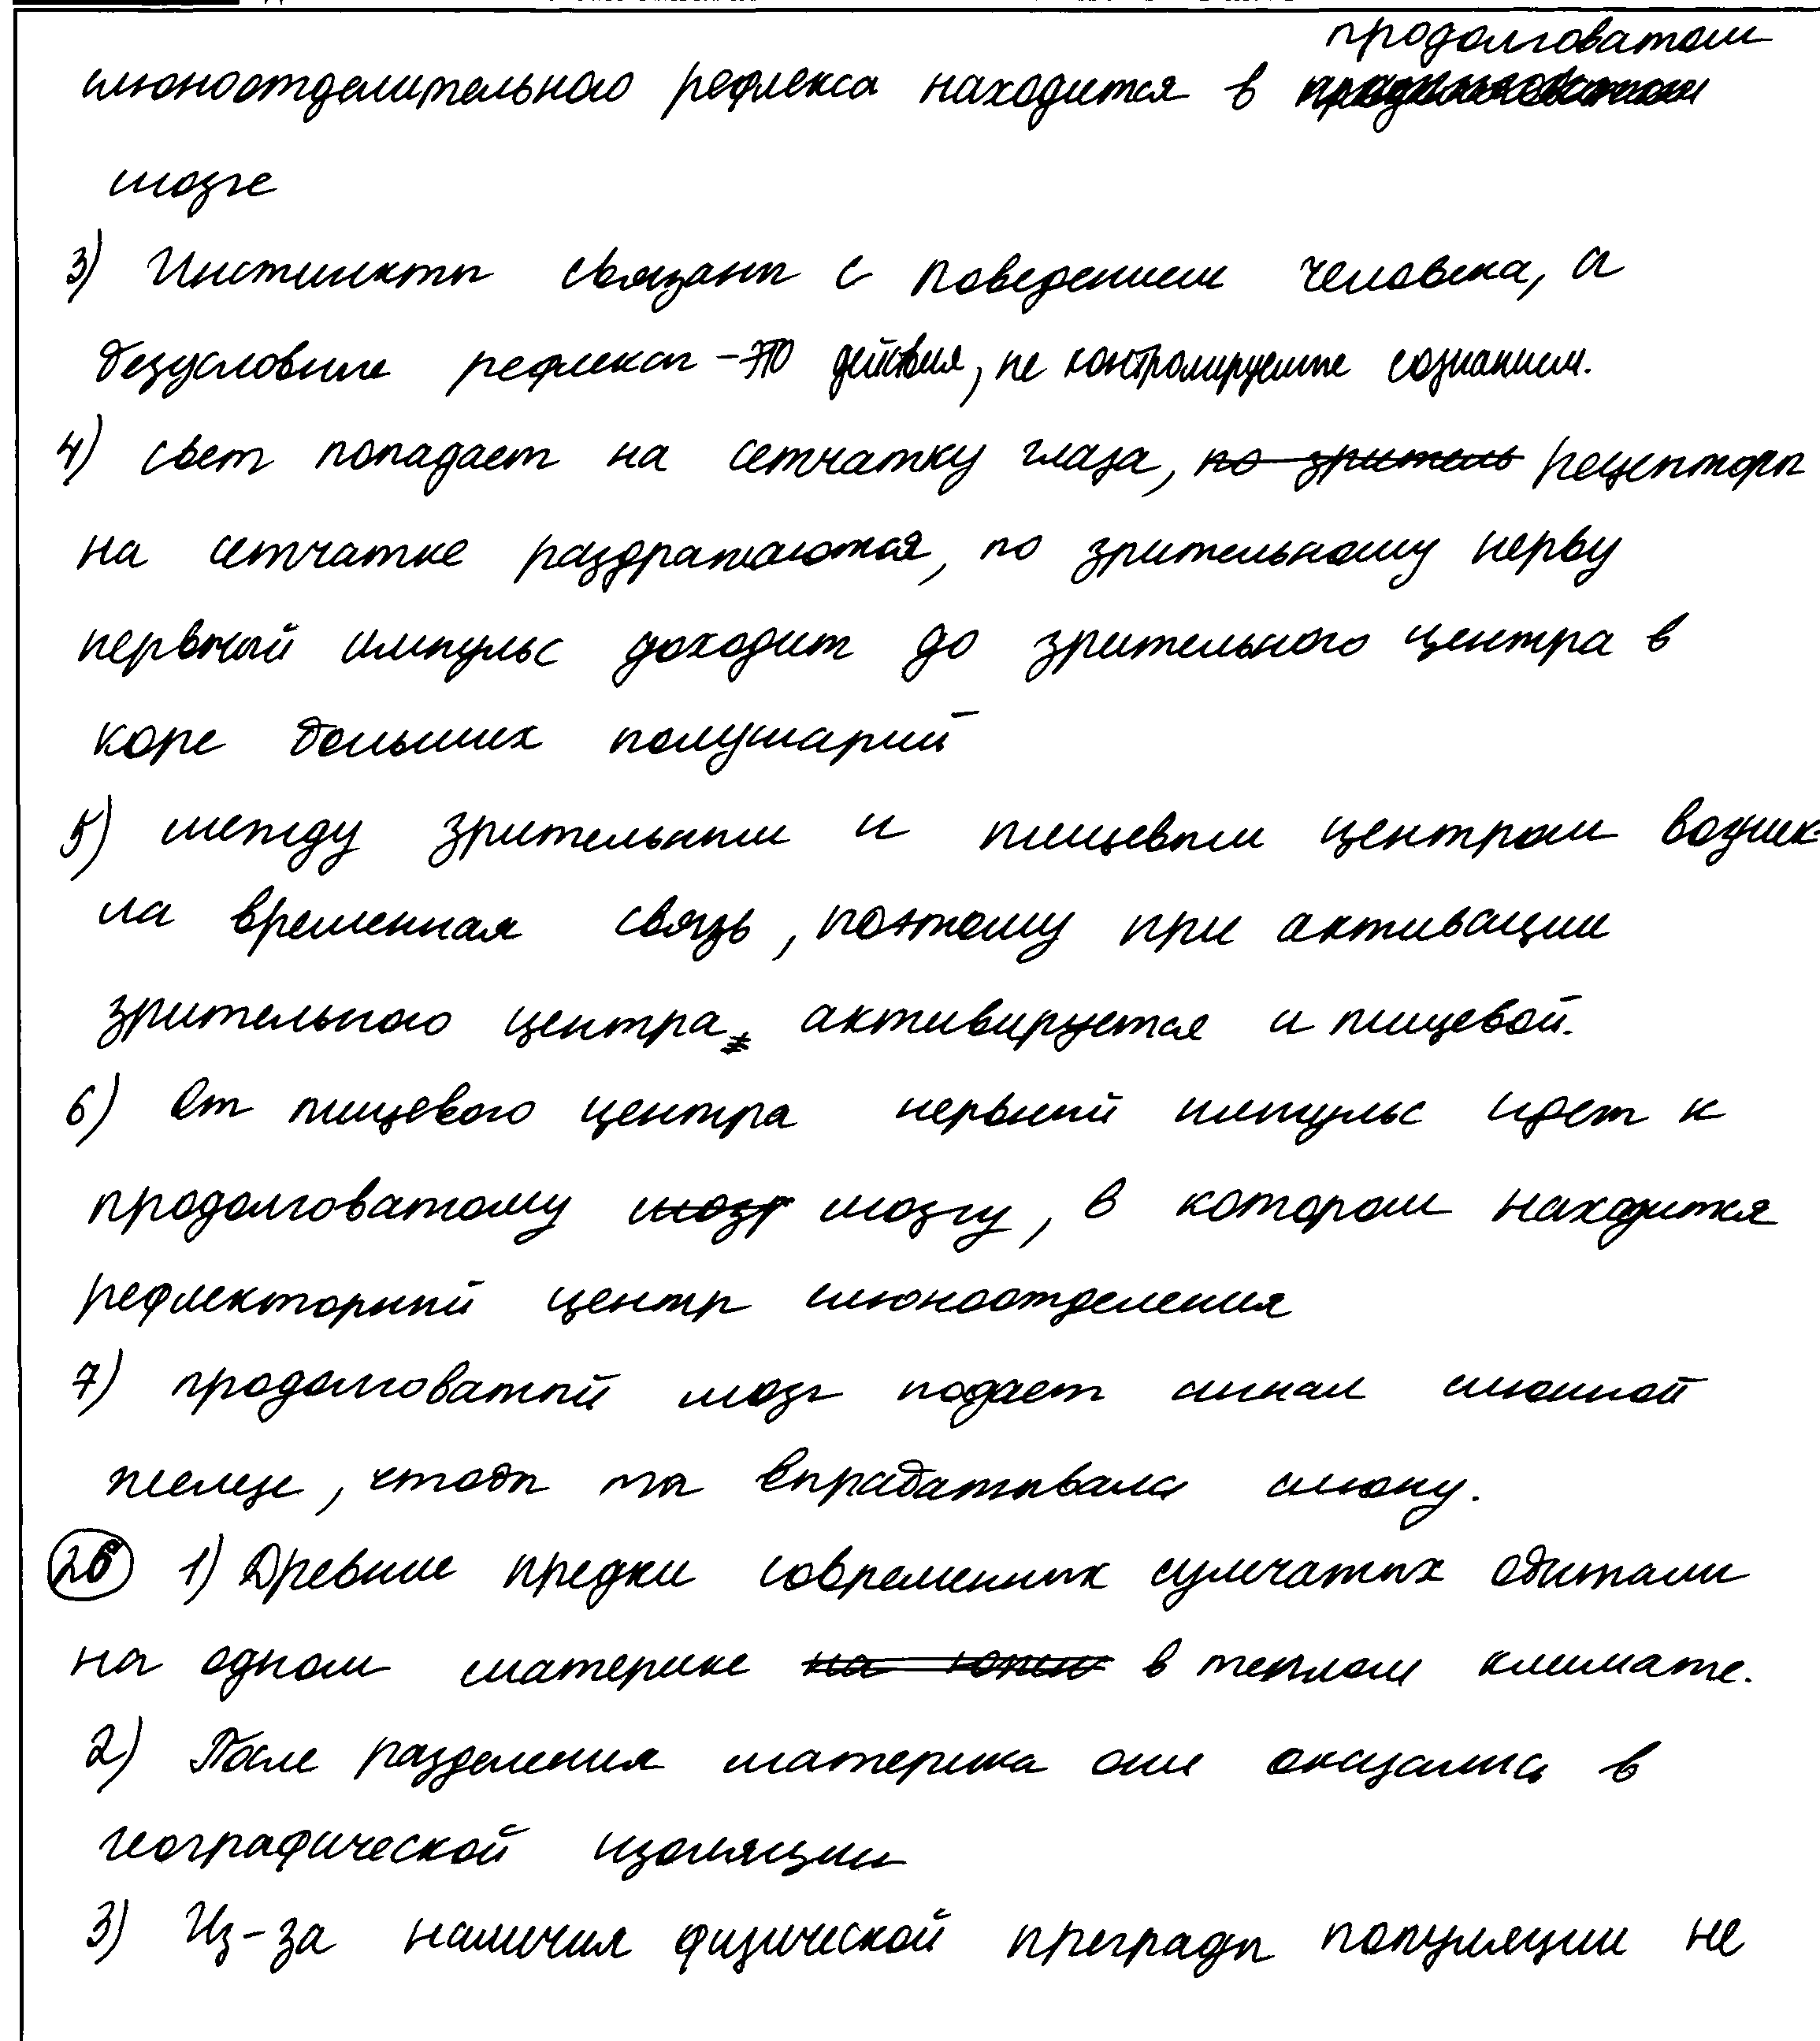 продолговатом
слюноотделительного рефлекса находится в
мозге
3) Инстинкты связаны с поведением человека, а
безусловные рефлексы - это действия, не контролируемые сознанием.
4) свет попадает на сетчатку глаза, по зритель рецепторы
на сетчатке раздражаются, по зрительному нерву
нервный импульс доходит до зрительного центра в
коре больших полушарий
5) между зрительным и пищевым центром возник-
ла временная связь, поэтому при активации
зрительного центра, активируется и пищевой.
6) От пищевого центра нервный импульс идет к
продолговатому мозг мозгу, в котором находится
рефлекторный центр слюноотделения
7) продолговатый мозг подает сигнал слюнной
железе, чтобы та вырабатывала слюну.
26 1) Древние предки современных сумчатых обитали
на одном материке на южн в теплом климате.
2) После разделения материка они оказались в
географической изоляции
3) Из-за наличия физической преграды популяции не